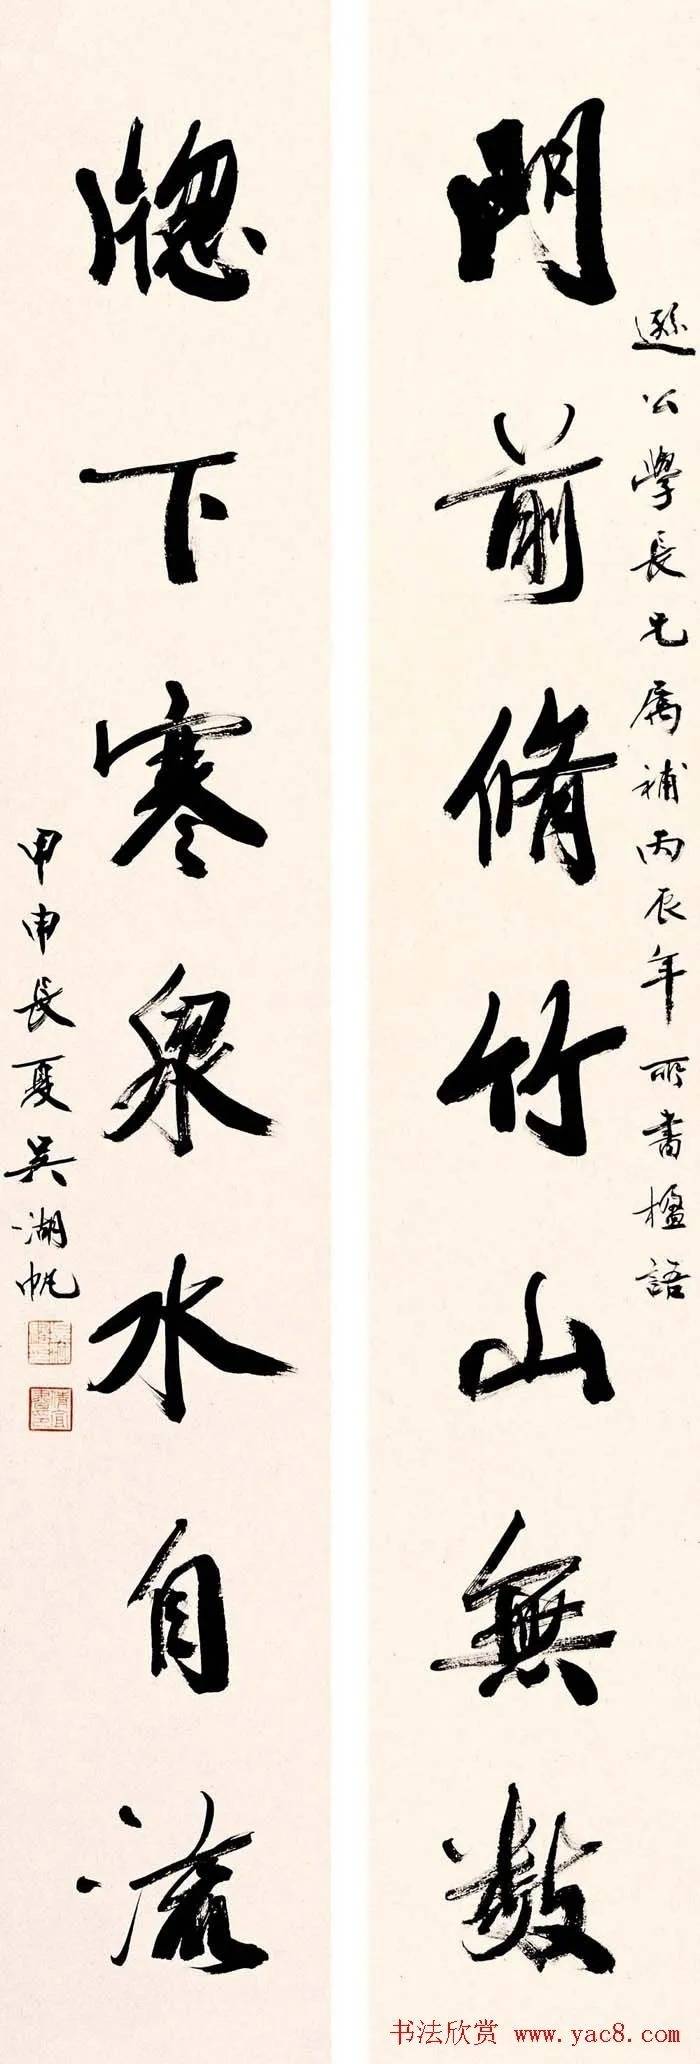 遜公學長兄属補丙辰年所書楹語
門前脩竹山無數
牕下寒泉水自流
甲申長夏吳湖帆
书法欣赏 www.yac8.com